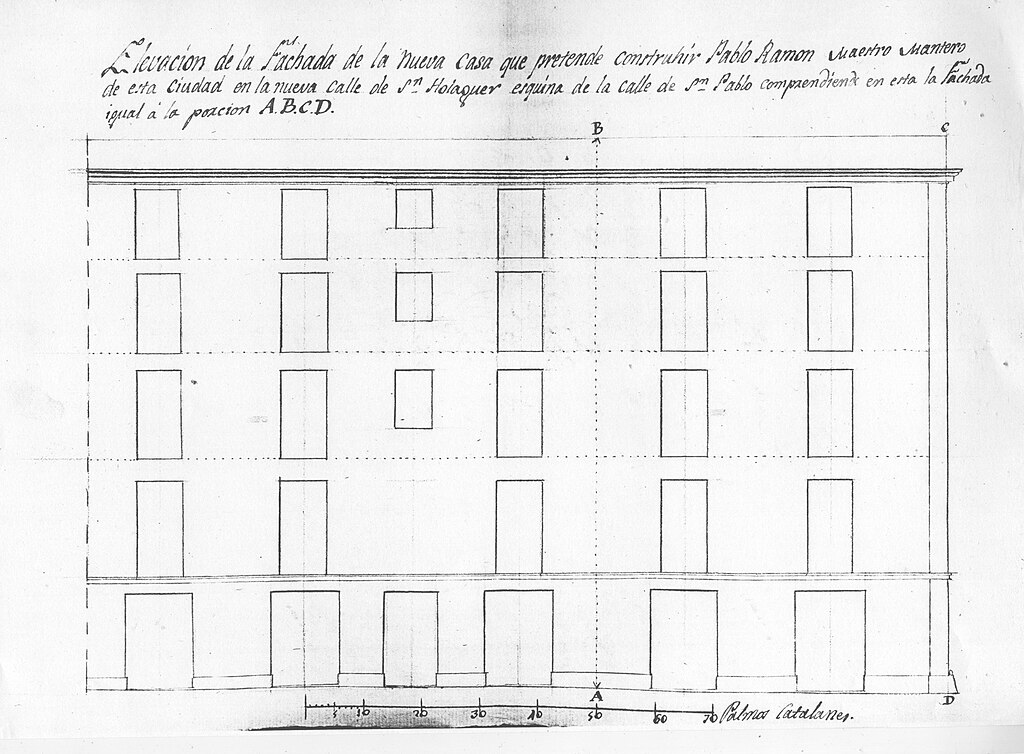 Elevacion de la Fachada de la nueva Casa que pretende Construhir Pablo Ramon Maestro Mantero
de esta Ciudad en la nueva Calle de Sn. Holaguer esquina de la Calle de Sn. Pablo comprendiend en esta la Fachada
igual á la porcion A.B.C.D.
B C
A D
5 10 20 30 40 50 60 70 Palmos Catalanes.